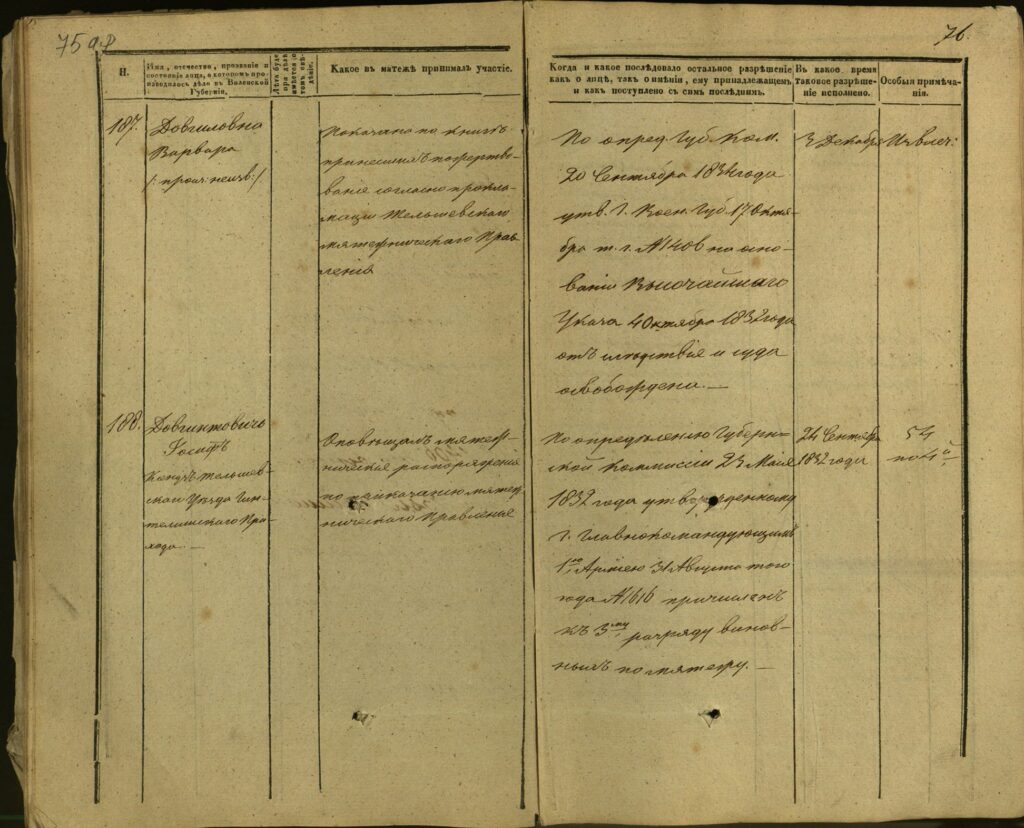 75 об
76.
Н.
Имя, отечество, прозваніе и состояніе лица, о которомъ производилось дѣло въ Виленской Губерніи.
Какое въ матежѣ принималъ участіе.
Когда и какое послѣдовало остальное разрѣшеніе
какъ о лицѣ, такъ о имѣніи, ему принадлежащемъ
и какъ поступлено съ симъ послѣднимъ.
Въ какое время
таковое разрѣше-
ніе исполнено.
Особыя примѣча-
нія.
187.
Довгиловна
Варвара
/: проис: неизв:/
Показана по книгѣ
принесшихъ пожертво-
ваніе согласно прокла-
маціи Тельшевскаго
мятежническаго Прав-
ленія
По опред. Губ. Ком.
20 Сентября 1834 года
утв. Г. Воен. Губ. 17 Октя-
бря т. г. №1406 на осно-
ваніи Высочайшаго
Указа 4 Октября 1832 года
отъ слѣдствія и суда
освобождена.—
3 Декабря
Извлеч:
188.
Довгинтовичъ
Іосифъ
Ксендзъ тельшев-
скаго Уѣзда Гин-
телишскаго При-
хода. —
Оповѣщалъ мятеж-
ническія распоряженія
по приказанію мятеж-
ническаго Правленья
По опредѣленію Губерн-
ской Коммисіи 23 Маія
1832 года утвержденному
Г. Главнокомандующимъ
1ю Арміею 31 Августа того
года №1616 причисленъ
къ 3му разряду винов-
ныхъ по мятежу. —
24 Сентября
1832 года
54
по 4й